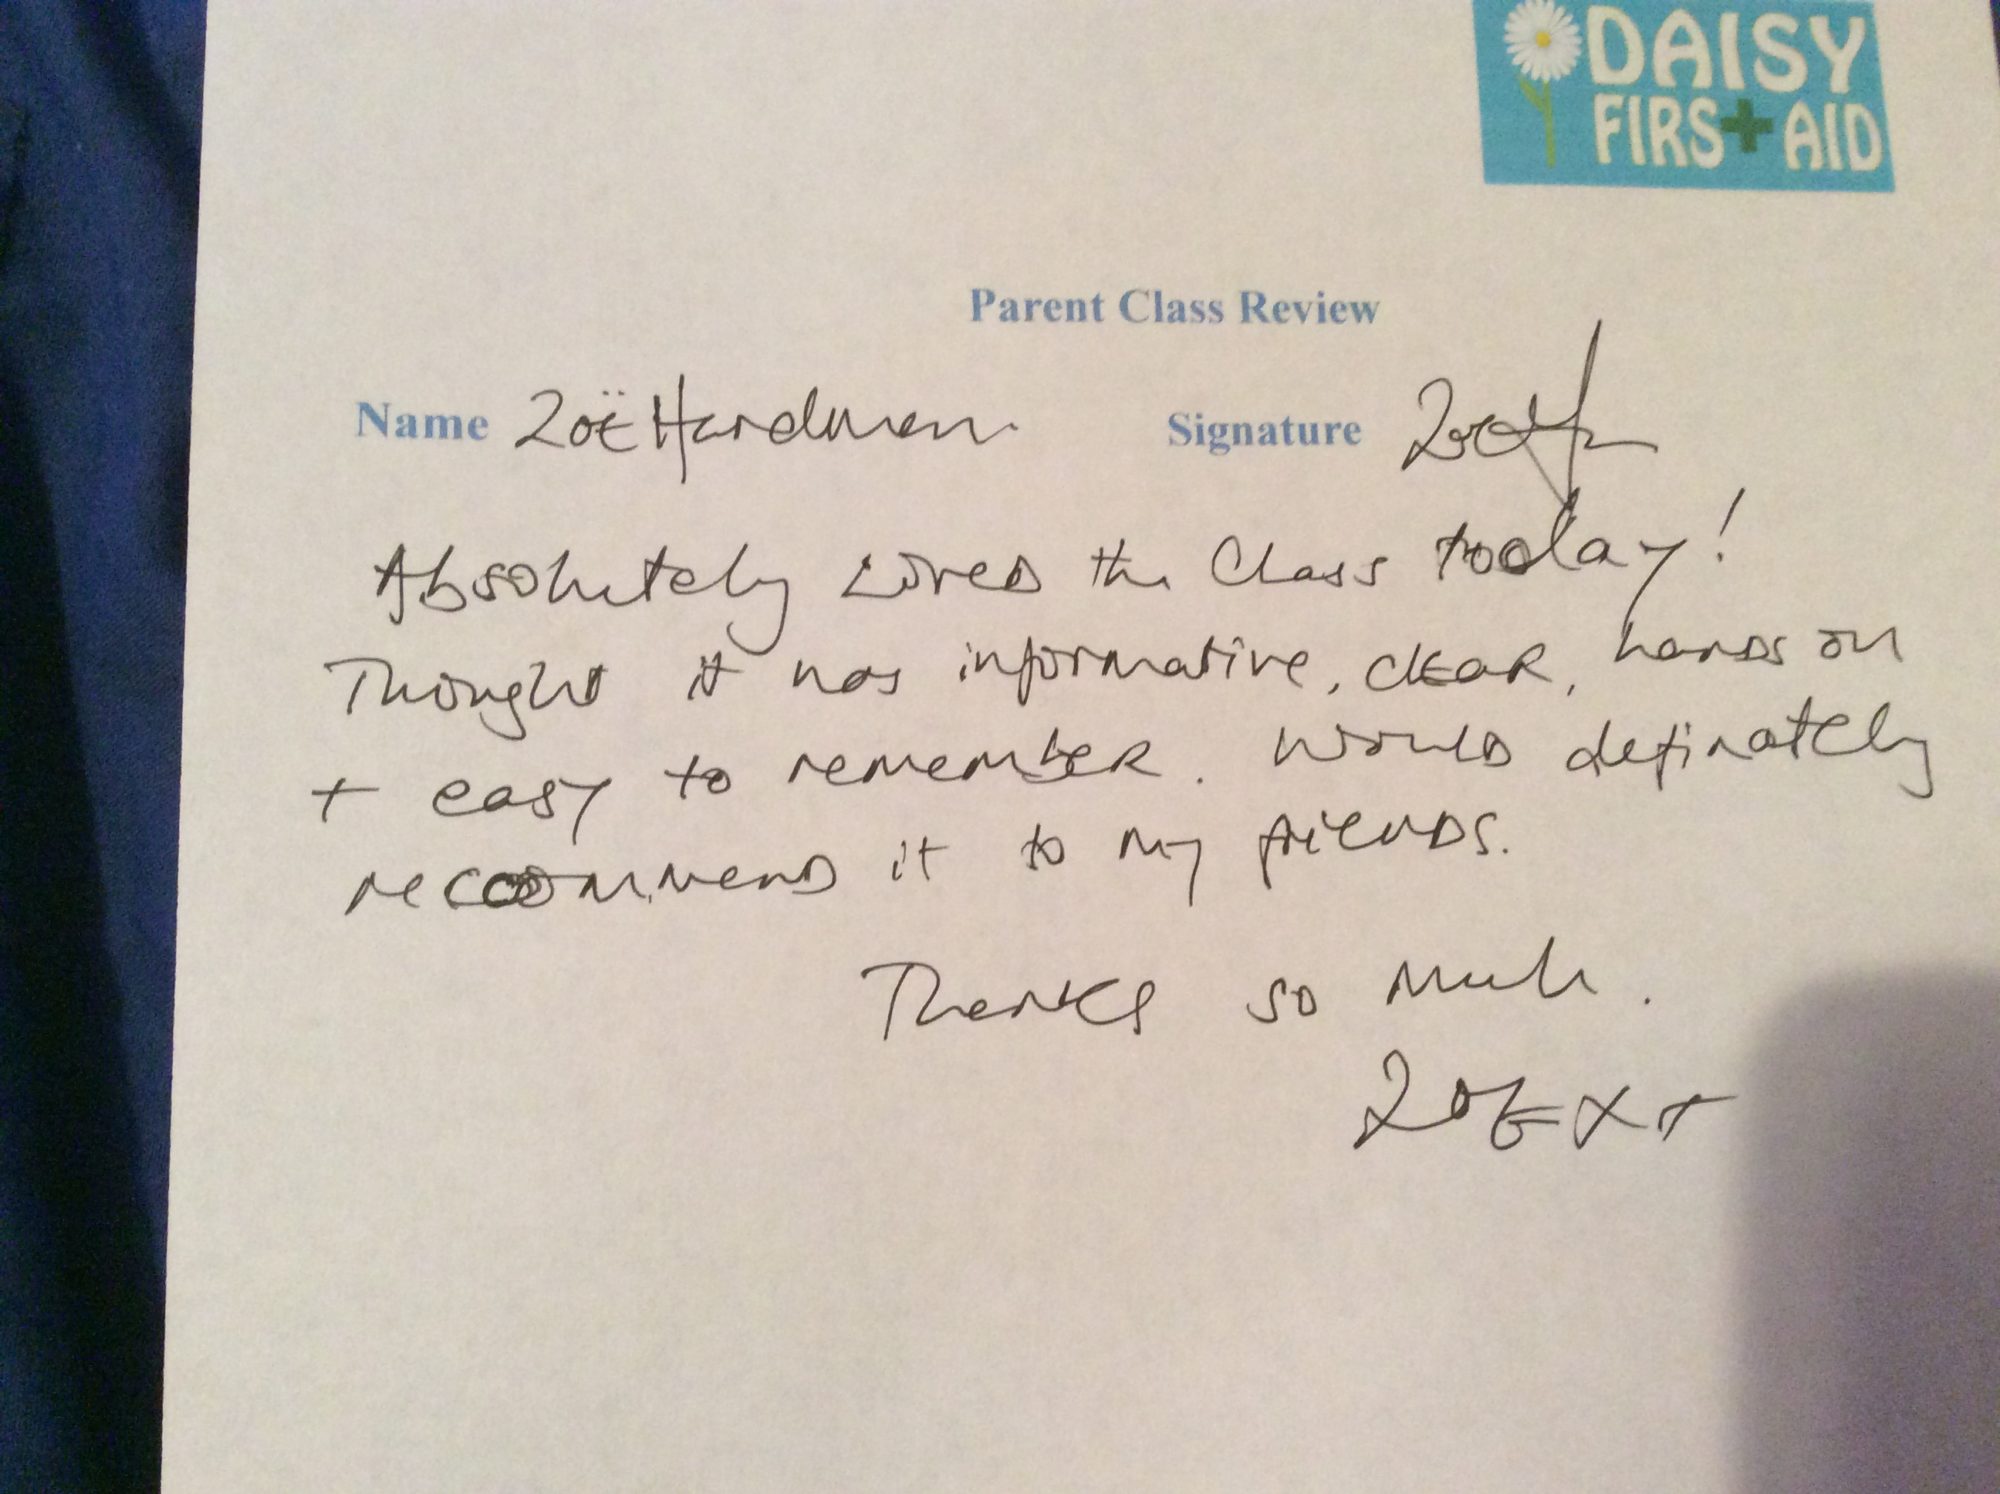 DAISY
FIRST AID
Parent Class Review
Name Zoë Hardman. Signature Zoë H
Absolutely LOVED the Class today!
Thought it was informative, clear, hands on
+ easy to remember. Would definately
recommend it to my friends.
Thanks so much.
ZOE XX